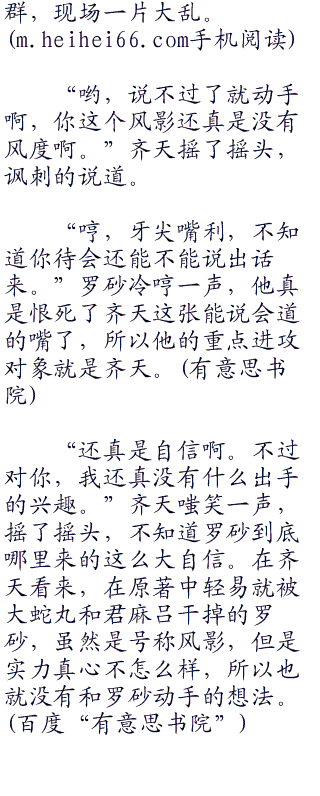 群，现场一片大乱。
(m.heihei66.com手机阅读)
“哟，说不过了就动手
啊，你这个风影还真是没有
风度啊。”齐天摇了摇头，
讽刺的说道。
“哼，牙尖嘴利，不知
道你待会还能不能说出话
来。”罗砂冷哼一声，他真
是恨死了齐天这张能说会道
的嘴了，所以他的重点进攻
对象就是齐天。(有意思书
院)
“还真是自信啊。不过
对你，我还真没有什么出手
的兴趣。”齐天嗤笑一声，
摇了摇头，不知道罗砂到底
哪里来的这么大自信。在齐
天看来，在原著中轻易就被
大蛇丸和君麻吕干掉的罗
砂，虽然是号称风影，但是
实力真心不怎么样，所以也
就没有和罗砂动手的想法。
(百度“有意思书院”)